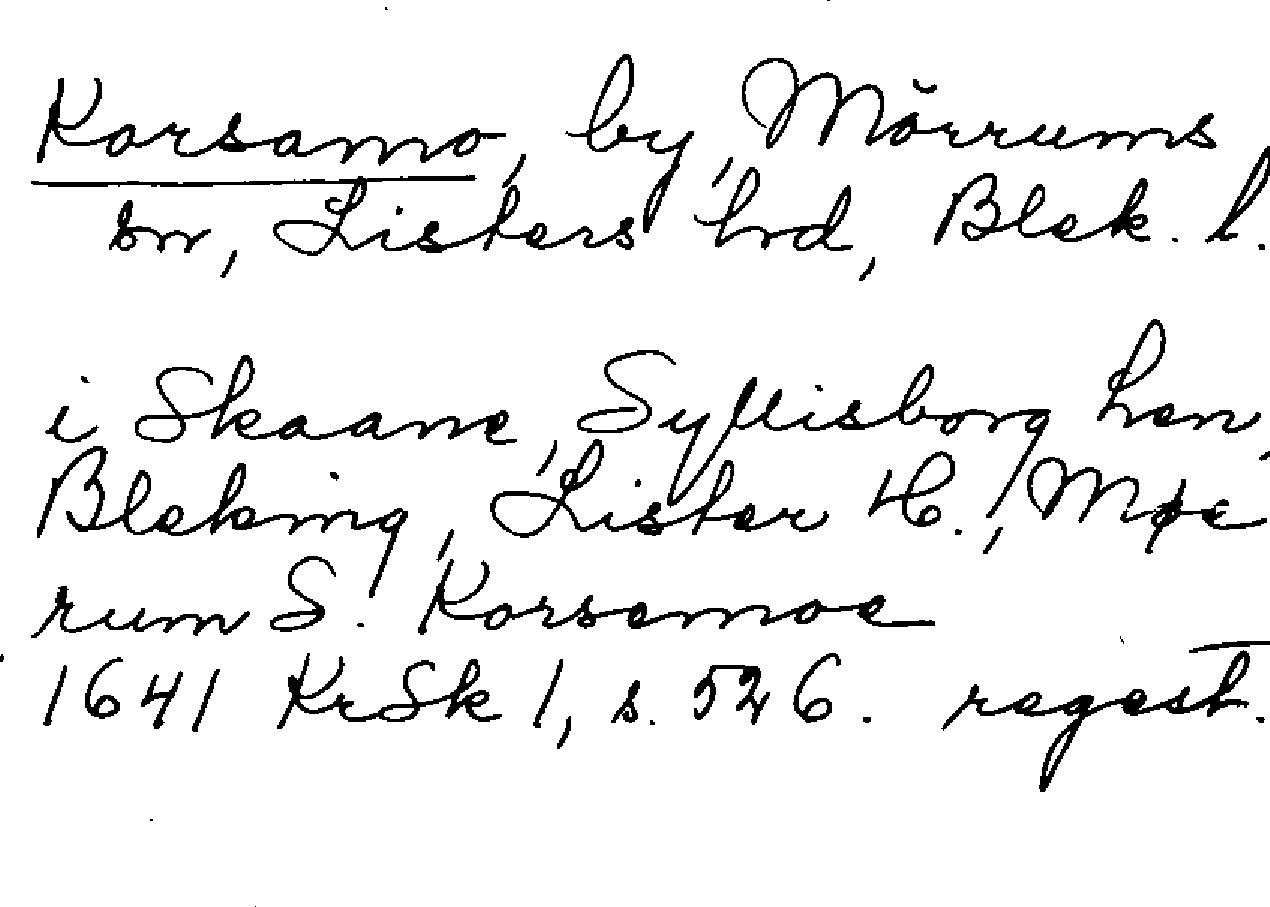 Korsamo, by, Mörrums
sn, Listers hrd, Blek. l.
i Skaane, Syllisborg Len,
Bleking, Lister H., Møe
rum S. Korsemoe
1641 KrSk 1, s. 526. regest.